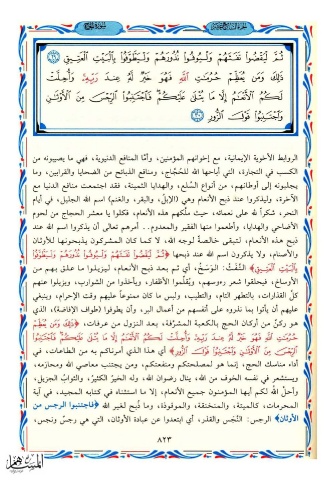 ثُمَّ لْيَقْضُوا تَفَثَهُمْ وَلْيُوفُوا نُذُورَهُمْ وَلْيَطَّوَّفُوا بِالْبَيْتِ الْعَتِيقِ
ذَلِكَ وَمَن يُعَظِّمْ حُرُمَاتِ اللَّهِ فَهُوَ خَيْرٌ لَّهُ عِندَ رَبِّهِ وَأُحِلَّتْ
لَكُمُ الْأَنْعَامُ إِلَّا مَا يُتْلَى عَلَيْكُمْ فَاجْتَنِبُوا الرِّجْسَ مِنَ الْأَوْثَانِ
وَاجْتَنِبُوا قَوْلَ الزُّورِ
الروابط الأخوية الإيمانية، مع إخوانهم المؤمنين، وأمَّا المنافع الدنيوية، فهي ما يصيبونه من
الكسب في التجارة، التي أباحها الله للحُجَّاج، ومنافع الذبائح من الضحايا والقرابين، وما
يجلبونه إلى أوطانهم، من أنواع السِّلع، والهدايا الثمينة، فقد اجتمعت منافع الدنيا مع
الآخرة، وليذكروا عند ذبح الأنعام وهي (الإبل، والبقر، والغنم) اسم الله الجليل، في أيام
النحر، شكراً لله على نعمائه، حيث ملَّكهم هذه الأنعام، فكلوا يا معشر الحجاج من لحوم
الأضاحي والهدايا، وأطعموا منها الفقير والمعدوم.. أمرهم تعالى أن يذكروا اسم الله عند
ذبح هذه الأنعام، لتبقى خالصة لوجه الله، لا كما كان المشركون يذبحونها للأوثان
والأصنام، ولا يذكرون اسم الله عند ذبحها ﴿ثُمَّ لْيَقْضُوا تَفَثَهُمْ وَلْيُوفُوا نُذُورَهُمْ وَلْيَطَّوَّفُوا
بِالْبَيْتِ الْعَتِيقِ﴾ التَّفَثُ: الوَسَخُ، أي ثم بعد ذبح الأنعام، ليزيلوا ما علق بهم من
الأوساخ، فيحلقوا شعر رءوسهم، ويُقلِّموا الأظفار، ويأخذوا من الشوارب، ويزيلوا عنهم
كلَّ القذارات، بالتطهر التام، والتطيب، ولبس ما كان ممنوعاً عليهم وقت الإحرام، وينبغي
عليهم أن يأتوا بما نذروه على أنفسهم من أعمال البر، وأن يطوفوا (طواف الإفاضة) الذي
هو ركنٌ من أركان الحج بالكعبة المشرَّفة، بعد النزول من عرفات، ﴿ذَلِكَ وَمَن يُعَظِّمْ
حُرُمَاتِ اللَّهِ فَهُوَ خَيْرٌ لَّهُ عِندَ رَبِّهِ وَأُحِلَّتْ لَكُمُ الْأَنْعَامُ إِلَّا مَا يُتْلَى عَلَيْكُمْ فَاجْتَنِبُوا
الرِّجْسَ مِنَ الْأَوْثَانِ وَاجْتَنِبُوا قَوْلَ الزُّورِ﴾ أي هذا الذي أمرناكم به من الطاعات، في
أداء مناسك الحج، إنما هو لمصلحتكم ومنفعتكم، ومن يجتنب معاصي الله ومحارمه،
ويستشعر في نفسه الخوف من الله، ينال رضوان الله، وله الخيرُ الكثيرُ، والثوابُ الجزيل،
وأحلَّ الله لكم أيها المؤمنون جميع الأنعام، إلا ما استثناه في كتابه المجيد، في آية
المحرمات، كالميتة، والمنخنقة، والموقوذة، وما ذُبح لغير الله ﴿فاجتنبوا الرجس من
الأوثان﴾ الرجس: النَّجَس والقذر، أي ابتعدوا عن عبادة الأوثان، التي هي رجسٌ ونجس،
٨٢٣